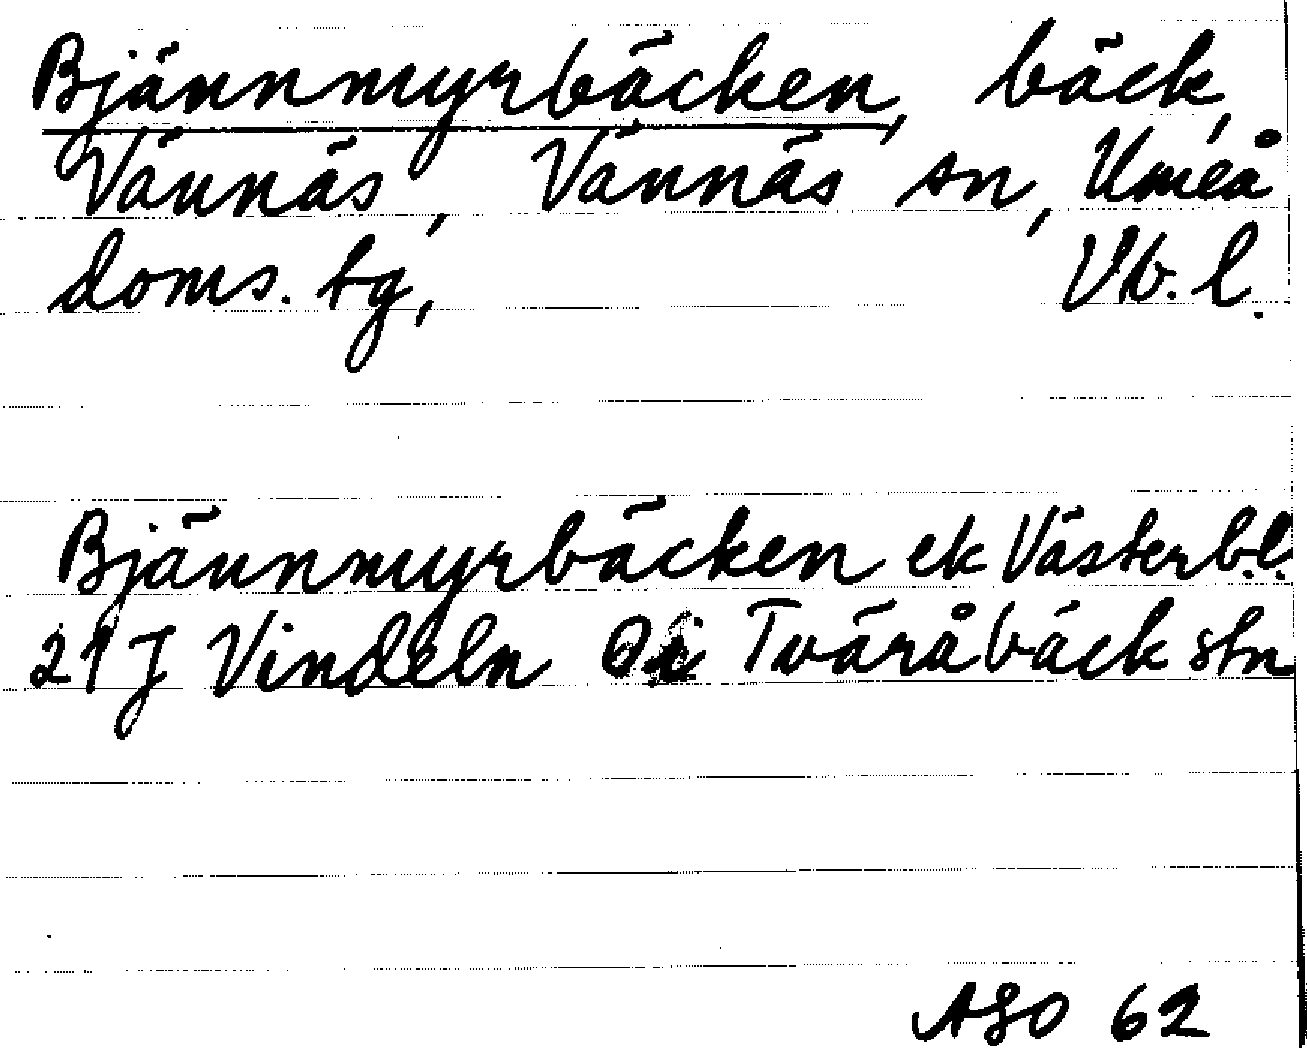 Bjännmyrbäcken, bäck,
Vännäs, Vännäs sn, Umeå
doms. tg, Vb. l.
Bjännmyrbäcken ek Västerb.l.
21 J Vindeln Tväråbäck stn
62